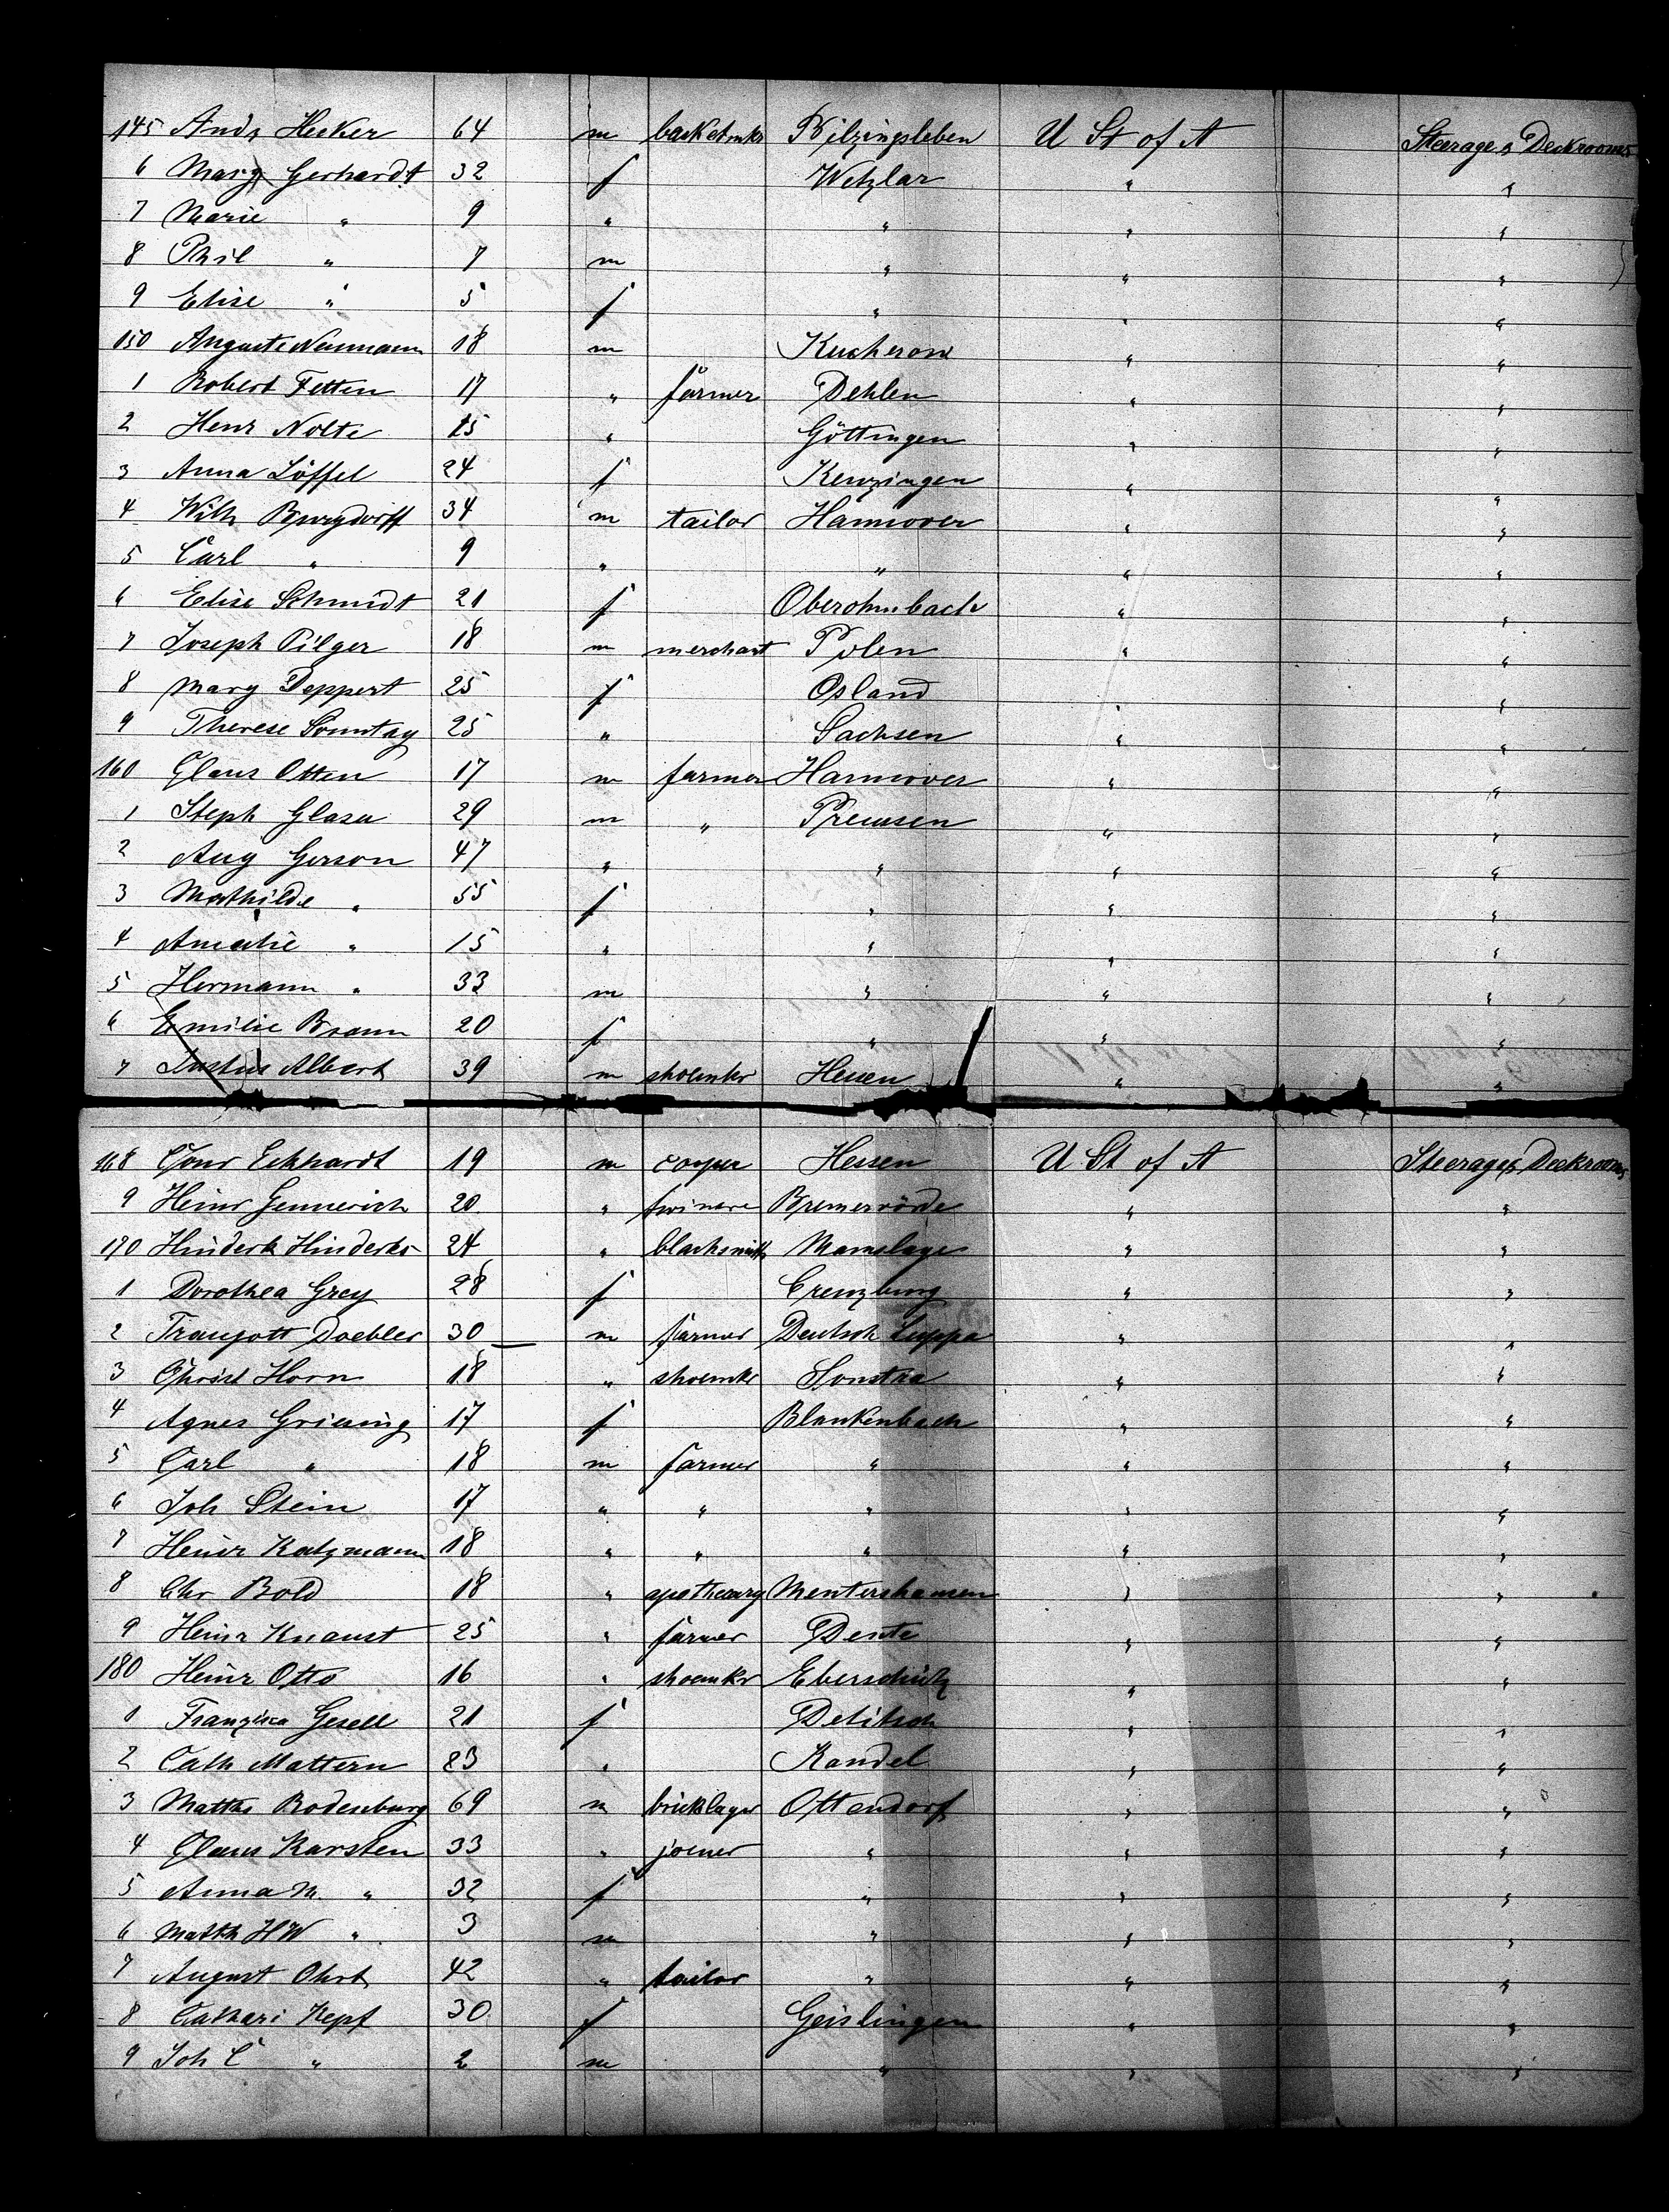 145 Andr Hecker 64 m basketmkr Bilzingsleben U St of A Steerage & Deckrooms
6 Marg Gerhardt 32 f Wetzlar " "
7 Marie " 9 " " " "
8 Phil " 7 m " " "
9 Elise " 5 f " " "
150 Auguste Neumann 18 m " "
1 Robert Fetten 17 " farmer Dehlen " "
2 Henr Nolte 15 " Göttingen " "
3 Anna Löffel 24 f Kenzingen " "
4 Wilh Burgdorff 34 m tailor Hannover " "
5 Carl " 9 " " " "
6 Elise Schmidt 21 f Oberohmbach " "
7 Joseph Pilger 18 m merchant Polen " "
8 Marg Deppert 25 f Osland " "
9 Therese Sonntag 25 " Sachsen " "
160 Claus Otten 17 m farmer Hannover " "
1 Steph Glasa 29 m " Preussen " "
2 Aug Gerson 47 " " " "
3 Mathilde " 55 f " " "
4 Amalie " 15 " " " "
5 Hermann " 33 m " " "
6 Emilie Braun 20 f " " "
7 Justus Albert 39 m shoemkr Hessen " "
168 Conr Eckhardt 19 m cooper Hessen U St of A Steerage & Deckrooms
9 Heinr Gennerich 20 " Bremervörde " "
170 Hinderk Hinderks 24 " blacksmith Manslage " "
1 Dorothea Grey 28 f Creuzburg " "
2 Traugott Doebler 30 m farmer Deutsch Luppa " "
3 Christ Horn 18 " shoemkr Sonstra " "
4 Agnes Griesing 17 f Blankenbach " "
5 Carl " 18 m farmer " " "
6 Joh Stein 17 " " " " "
7 Heinr Katzmann 18 " " " " "
8 Chr Bold 18 " apothecary Mentershausen " "
9 Heinr Knaust 25 " farmer Dente " "
180 Heinr Otto 16 " shoemkr Eberschütz " "
1 Franzisca Gesell 21 f Delitsch " "
2 Cath Mattern 23 " Kandel " "
3 Matths Rodenburg 69 m bricklayer Ottendorf " "
4 Claus Karsten 33 " joiner " " "
5 Anna M. " 32 f " " "
6 Matth H W " 3 m " " "
7 August Ohrt 42 " tailor " " "
8 Cathari Kepf 30 f Geislingen " "
9 Joh C " 2 m " " "